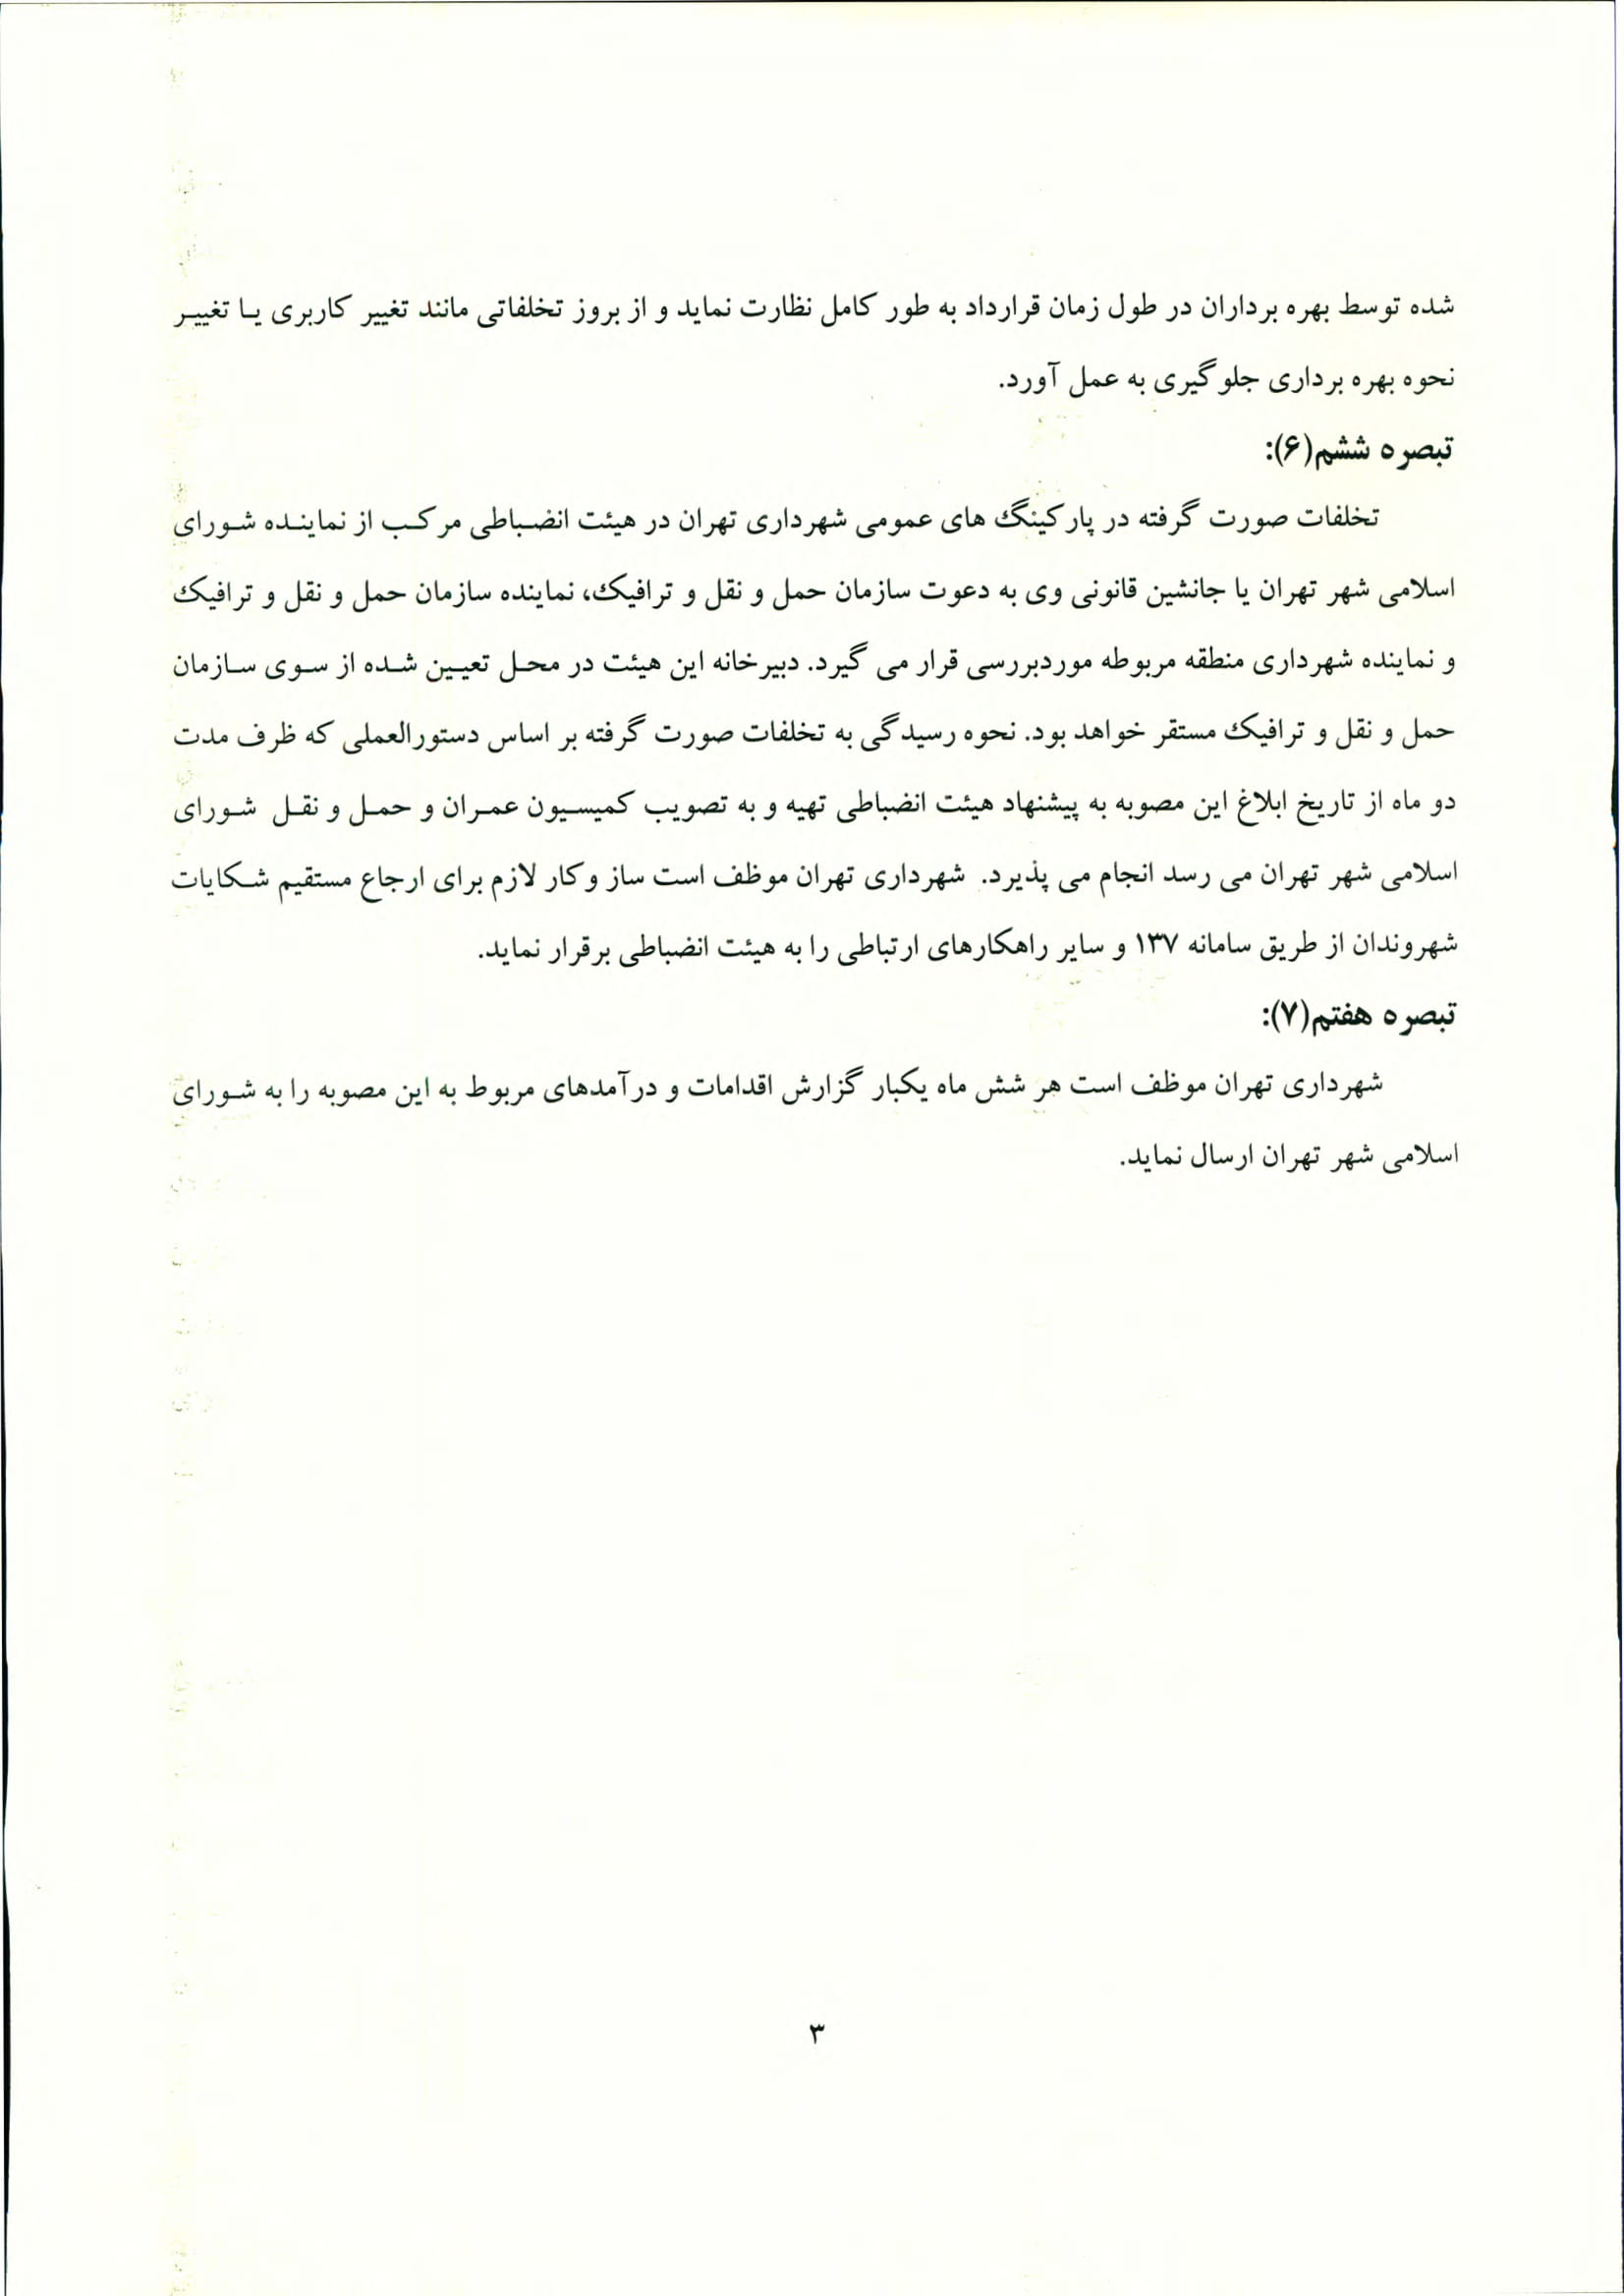 شده توسط بهره برداران در طول زمان قرارداد به طور کامل نظارت نماید و از بروز تخلفاتی مانند تغییر کاربری یا تغییر
نحوه بهره برداری جلوگیری به عمل آورد.
تبصره ششم(۶):
تخلفات صورت گرفته در پارکینگ های عمومی شهرداری تهران در هیئت انضباطی مرکب از نماینده شورای
اسلامی شهر تهران یا جانشین قانونی وی به دعوت سازمان حمل و نقل و ترافیک، نماینده سازمان حمل و نقل و ترافیک
و نماینده شهرداری منطقه مربوطه موردبررسی قرار می گیرد. دبیرخانه این هیئت در محل تعیین شده از سوی سازمان
حمل و نقل و ترافیک مستقر خواهد بود. نحوه رسیدگی به تخلفات صورت گرفته بر اساس دستورالعملی که ظرف مدت
دو ماه از تاریخ ابلاغ این مصوبه به پیشنهاد هیئت انضباطی تهیه و به تصویب کمیسیون عمران و حمل و نقل شورای
اسلامی شهر تهران می رسد انجام می پذیرد. شهرداری تهران موظف است ساز و کار لازم برای ارجاع مستقیم شکایات
شهروندان از طریق سامانه ۱۳۷ و سایر راهکارهای ارتباطی را به هیئت انضباطی برقرار نماید.
تبصره هفتم(۷):
شهرداری تهران موظف است هر شش ماه یکبار گزارش اقدامات و درآمدهای مربوط به این مصوبه را به شورای
اسلامی شهر تهران ارسال نماید.
۳